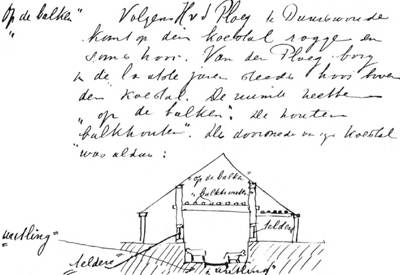 "op de balken" Volgens H v d Ploeg te Duurswoude
komt op den koestal rogge en
soms hooi. Van der Ploeg borg
in de laatste jaren steeds hooi boven
den koestal. De ruimte heette
"op de balken". De houten
"balkhouten". De doorsnede van zijn koestal
was aldus:
"op de balken"
"balkhouten"
"selders"
"selders"